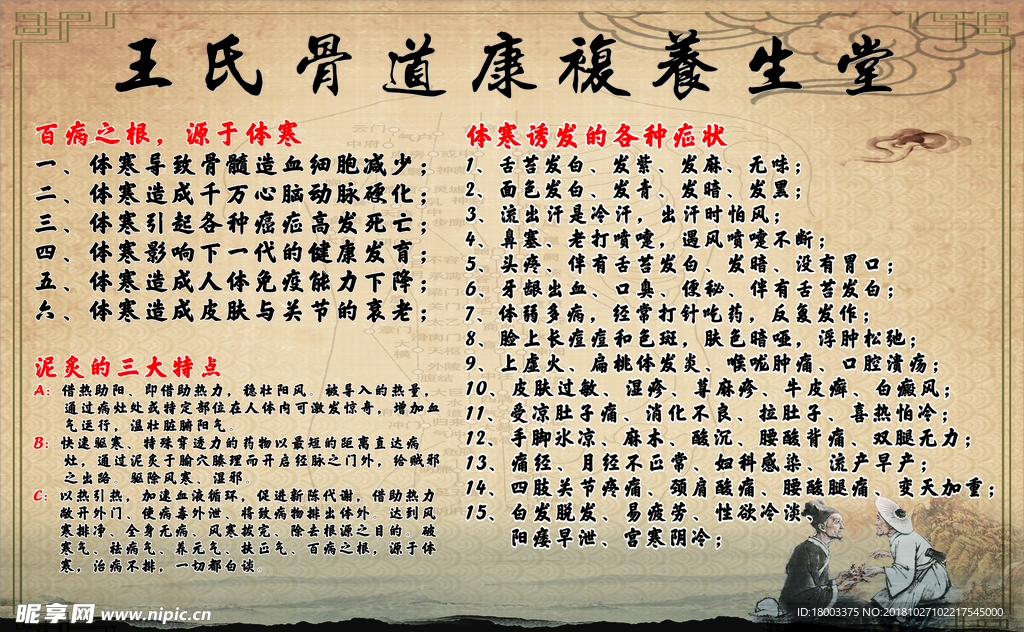 王氏骨道康複養生堂
百病之根，源于体寒
一、体寒导致骨髓造血细胞减少；
二、体寒造成千万心脑动脉硬化；
三、体寒引起各种癌症高发死亡；
四、体寒影响下一代的健康发育；
五、体寒造成人体免疫能力下降；
六、体寒造成皮肤与关节的衰老；
泥炙的三大特点
A：借热助阳、即借助热力，稳壮阳风。被导入的热量，
通过病灶处或特定部位在人体内可激发惊奇，增加血
气运行，温壮脏腑阳气。
B：快速驱寒、特殊穿透力的药物以最短的距离直达病
灶，通过泥炙于腧穴腠理而开启经脉之门外，给贼邪
之出路。驱除风寒、湿邪。
C：以热引热，加速血液循环，促进新陈代谢，借助热力
敞开外门、使病毒外泄、将致病物排出体外。达到风
寒排净、全身无病、风寒拔完、除去根源之目的。破
寒气、祛病气、养元气、扶正气、百病之根，源于体
寒，治病不排，一切都白谈。
体寒诱发的各种症状
1、舌苔发白、发紫、发麻、无味；
2、面色发白、发青、发暗、发黑；
3、流出汗是冷汗，出汗时怕风；
4、鼻塞、老打喷嚏，遇风喷嚏不断；
5、头疼、伴有舌苔发白、发暗、没有胃口；
6、牙龈出血、口臭、便秘、伴有舌苔发白；
7、体弱多病，经常打针吃药，反复发作；
8、脸上长痘痘和色斑，肤色暗哑，浮肿松弛；
9、上虚火、扁桃体发炎、喉咙肿痛、口腔溃疡；
10、皮肤过敏、湿疹、荨麻疹、牛皮癣、白癜风；
11、受凉肚子痛、消化不良、拉肚子、喜热怕冷；
12、手脚冰凉、麻木、酸沉、腰酸背痛、双腿无力；
13、痛经、月经不正常、妇科感染、流产早产；
14、四肢关节疼痛、颈肩酸痛、腰酸腿痛、变天加重；
15、白发脱发、易疲劳、性欲冷淡、
阳痿早泄、宫寒阴冷；
昵享网 www.nipic.cn
ID:18003375 NO:20181027102217545000